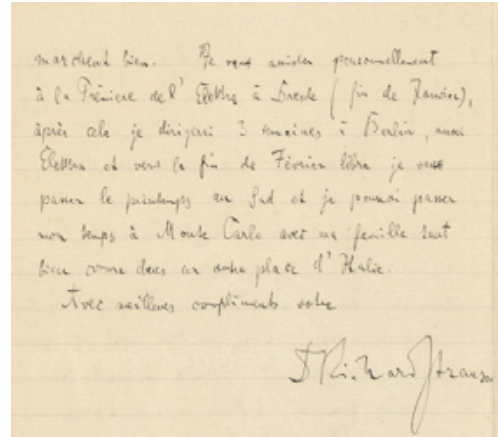 marchent bien. Je veux assister personnellement
à la Première de l' Elektra à Dresde (fin de Janvier),
après cela je dirigerai 3 semaines à Berlin, aussi
Elektra et vers la fin de Février libre je veux
passer le printemps au Sud et je pourrai passer
mon temps à Monte Carlo avec ma famille tout
bien comme dans un autre place d' Italie.
Avec meilleurs compliments votre
D Richard Strauss